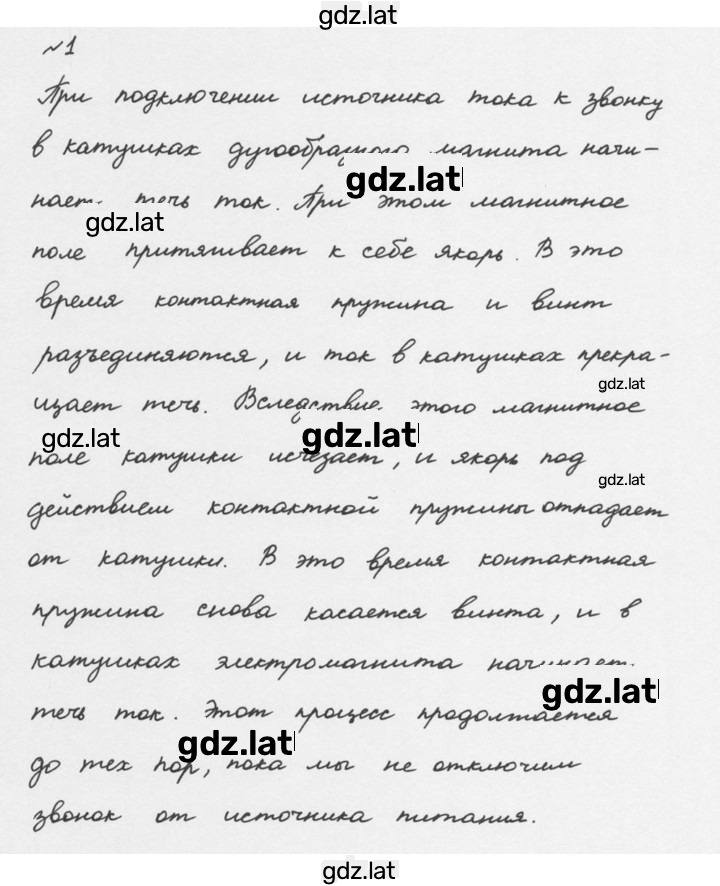 gdz.lat
№1
При подключении источника тока к звонку
в катушках дугообразного магнита начи-
gdz.lat
нает течь ток. При этом магнитное
gdz.lat
поле притягивает к себе якорь. В это
время контактная пружина и винт
разъединяются, и ток в катушках прекра-
gdz.lat
щает течь. Вследствие этого магнитное
gdz.lat gdz.lat
поле катушки исчезает, и якорь под
gdz.lat
действием контактной пружины отпадает
от катушки. В это время контактная
пружина снова касается винта, и в
катушках электромагнита начинает
gdz.lat
течь ток. Этот процесс продолжается
gdz.lat
до тех пор, пока мы не отключим
звонок от источника питания.
gdz.lat